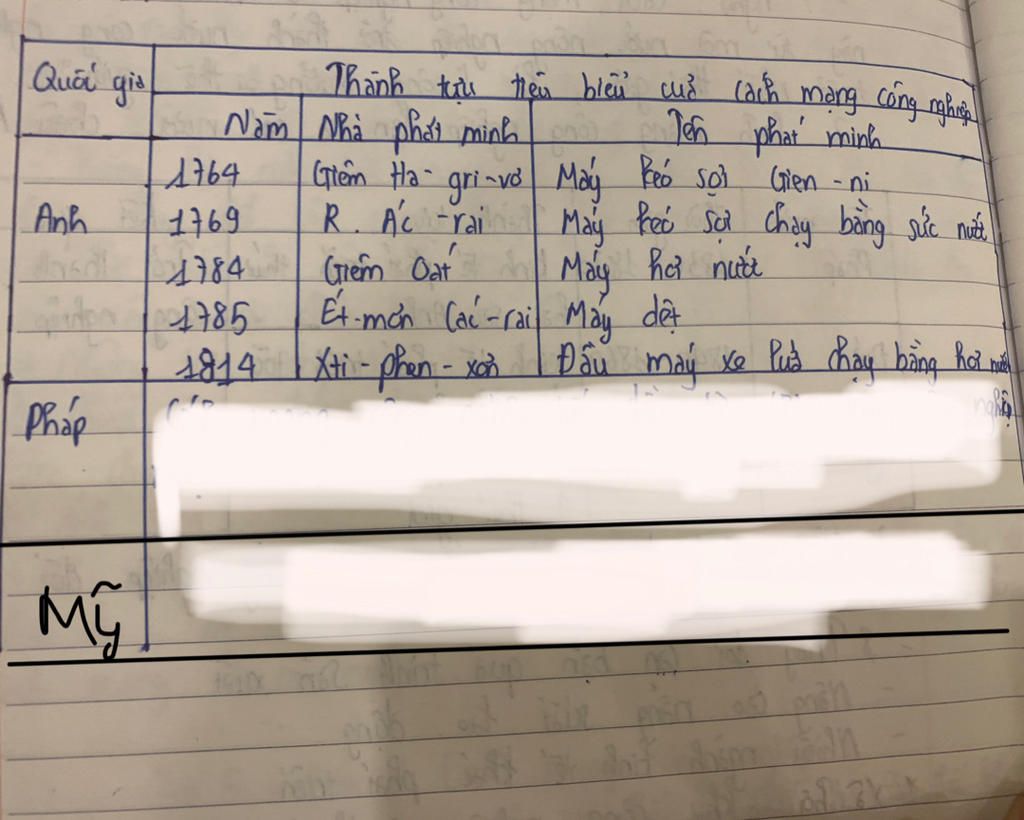 Quốc gia Thành tựu tiêu biểu của cách mạng công nghiệp
Năm Nhà phát minh Tên phát minh
1764 Giêm Ha-gri-vơ Máy kéo sợi Gien-ni
Anh 1769 R. Ác-rai Máy kéo sợi chạy bằng sức nước
1784 Giêm Oát Máy hơi nước
1785 Ét-mơn Các-rai Máy dệt
1814 Xti-phen-xơn Đầu máy xe lửa chạy bằng hơi nước
Pháp
Mỹ